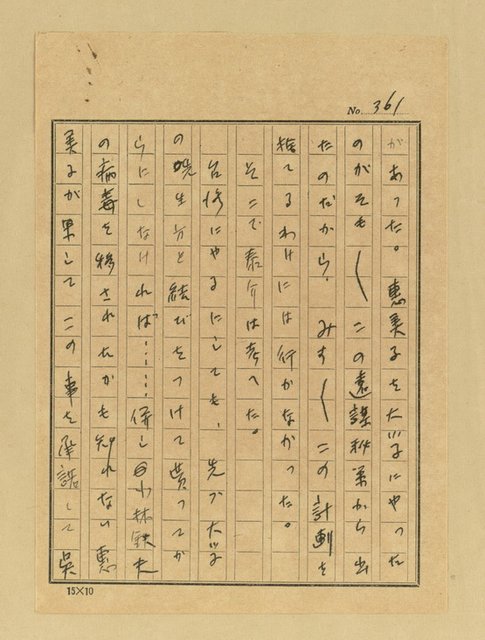 No. 361
があった。恵美子を大川にやった
のがそも〳〵この遠謀秘策から出
たのだから、みす〳〵この計劃を
捨てるわけには行かなかった。
そこで泰介は考へた。
台湾にやるにしても、先づ大川
の晩生分と結びをつけて貰ってか
らにしなければ………併し小林鉄夫
の病毒を移されたかも知れない恵
美子が果してこの事を承諾して呉
15×10